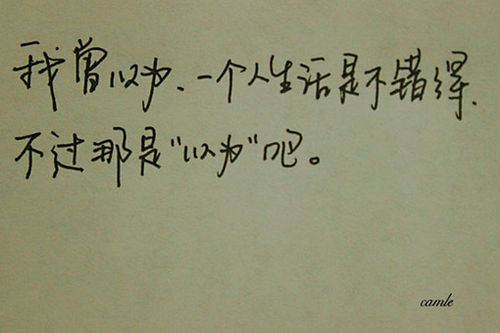 我曾以为、一个人生活是不错得.
不过那是"以为"吧。
camle